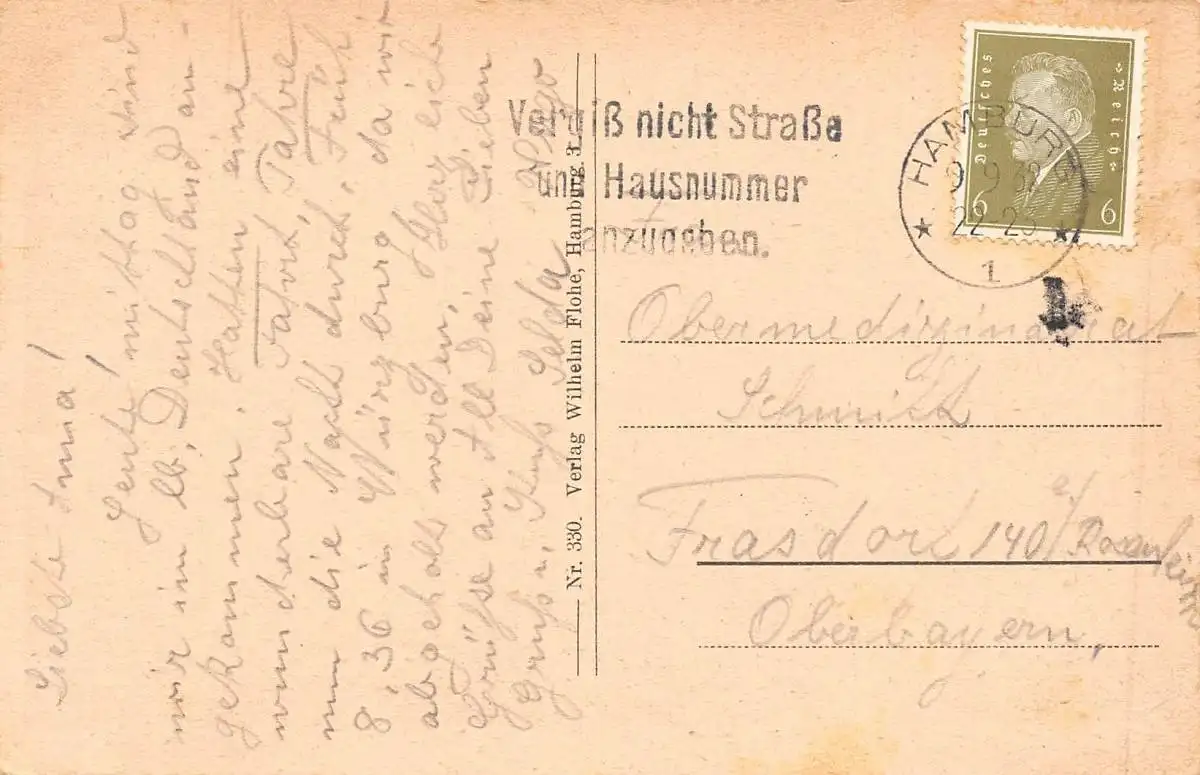 Liebste Irma!
Heute mittag sind
wir im lb. Deutschland an-
gekommen. Hatten eine
wunderbare Fahrt. Fahre
nun die Nacht durch. Früh
8,36 in Würzburg da wir
abgeholt werden. Herzliche
Grüsse an all Deine Lieben
Gruss u. Kuss Selda
Nr. 330. Verlag Wilhelm Flohe, Hamburg. 3.
Vergiß nicht Straße
und Hausnummer
anzugeben.
Deutsches Reich
6 6
HAMBURG
9.9.32
22-23
1
Obermedizinalrat
Schmitt
Frasdorf 140 / Rosenheim
Oberbayern,